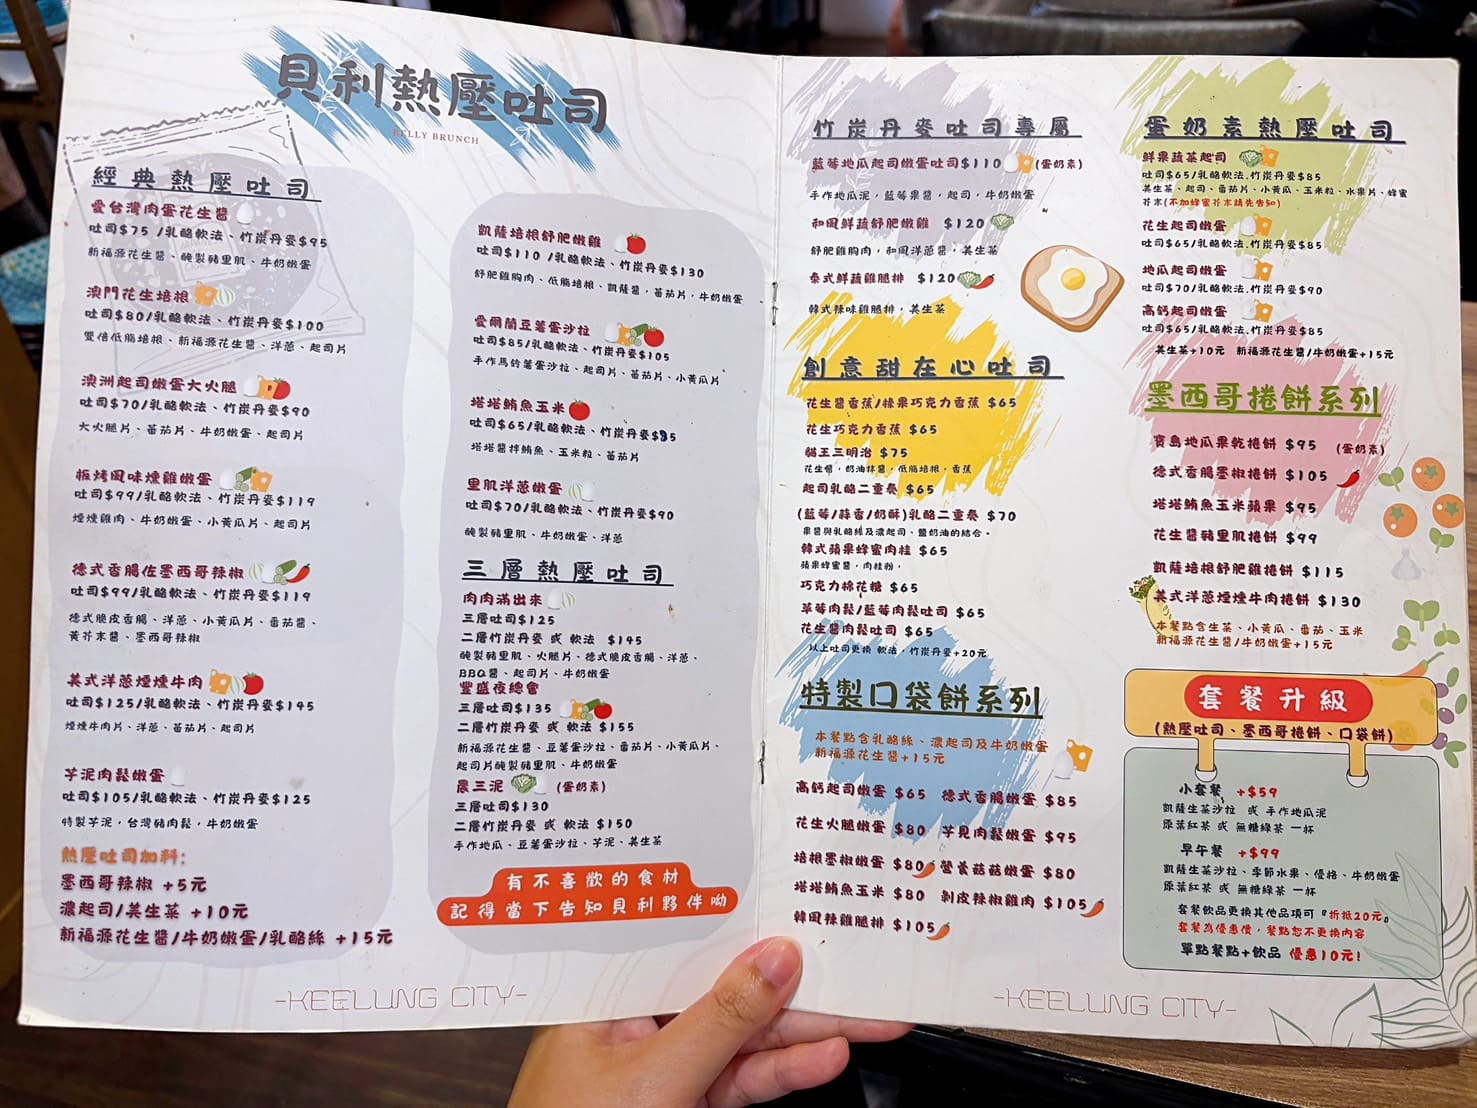 貝利熱壓吐司
BELLY BRUNCH
經典熱壓吐司
愛台灣肉蛋花生醬
吐司$75 /乳酪軟法、竹炭丹麥$95
新福源花生醬、醃製豬里肌、牛奶嫩蛋
澳門花生培根
吐司$80/乳酪軟法、竹炭丹麥$100
雙倍低脂培根、新福源花生醬、洋蔥、起司片
澳洲起司嫩蛋大火腿
吐司$70/乳酪軟法、竹炭丹麥$90
大火腿片、蕃茄片、牛奶嫩蛋、起司片
板烤風味燻雞嫩蛋
吐司$99/乳酪軟法、竹炭丹麥$119
煙燻雞肉、牛奶嫩蛋、小黃瓜片、起司片
德式香腸佐墨西哥辣椒
吐司$99/乳酪軟法、竹炭丹麥$119
德式脆皮香腸、洋蔥、小黃瓜片、番茄醬、
黃芥末醬、墨西哥辣椒
美式洋蔥煙燻牛肉
吐司$125/乳酪軟法、竹炭丹麥$145
煙燻牛肉片、洋蔥、蕃茄片、起司片
芋泥肉鬆嫩蛋
吐司$105/乳酪軟法、竹炭丹麥$125
特製芋泥，台灣豬肉鬆，牛奶嫩蛋
熱壓吐司加料:
墨西哥辣椒 +5元
濃起司/美生菜 +10元
新福源花生醬/牛奶嫩蛋/乳酪絲 +15元
凱薩培根舒肥嫩雞
吐司$110 /乳酪軟法、竹炭丹麥$130
舒肥雞胸肉、低脂培根、凱薩醬，蕃茄片，牛奶嫩蛋
愛爾蘭豆薯蛋沙拉
吐司$85/乳酪軟法、竹炭丹麥$105
手作馬鈴薯蛋沙拉、起司片、蕃茄片、小黃瓜片
塔塔鮪魚玉米
吐司$65/乳酪軟法、竹炭丹麥$85
塔塔醬拌鮪魚、玉米粒、蕃茄片
里肌洋蔥嫩蛋
吐司$70/乳酪軟法、竹炭丹麥$90
醃製豬里肌、牛奶嫩蛋、洋蔥
三層熱壓吐司
肉肉滿出來
三層吐司$125
二層竹炭丹麥 或 軟法 $145
醃製豬里肌、火腿片、德式脆皮香腸、洋蔥、
BBQ醬、起司片、牛奶嫩蛋
豐盛夜總會
三層吐司$135
二層竹炭丹麥 或 軟法 $155
新福源花生醬、豆薯蛋沙拉、番茄片、小黃瓜片、
起司片醃製豬里肌、牛奶嫩蛋
農三泥 (蛋奶素)
三層吐司$130
二層竹炭丹麥 或 軟法 $150
手作地瓜、豆薯蛋沙拉、芋泥、美生菜
有不喜歡的食材
記得當下告知貝利夥伴呦
-KEELUNG CITY-
竹炭丹麥吐司專屬
藍莓地瓜起司嫩蛋吐司$110 (蛋奶素)
手作地瓜泥，藍莓果醬，起司，牛奶嫩蛋
和風鮮蔬舒肥嫩雞 $120
舒肥雞胸肉，和風洋蔥醬，美生菜
泰式鮮蔬雞腿排 $120
韓式辣味雞腿排，美生菜
創意甜在心吐司
花生醬香蕉/榛果巧克力香蕉 $65
花生巧克力香蕉 $65
貓王三明治 $75
花生醬，奶油抹醬，低脂培根，香蕉
起司乳酪二重奏 $65
(藍莓/蒜香/奶酥)乳酪二重奏 $70
果醬與乳酪絲及濃起司、鹽奶油的結合。
韓式蘋果蜂蜜肉桂 $65
蘋果蜂蜜醬，肉桂粉，
巧克力棉花糖 $65
草莓肉鬆/藍莓肉鬆吐司 $65
花生醬肉鬆吐司 $65
以上吐司更換 軟法，竹炭丹麥+20元
特製口袋餅系列
本餐點含乳酪絲、濃起司及牛奶嫩蛋
新福源花生醬+15元
高鈣起司嫩蛋 $65 德式香腸嫩蛋 $85
花生火腿嫩蛋 $80 芋見肉鬆嫩蛋 $95
培根墨椒嫩蛋 $80 營養菇菇嫩蛋 $80
塔塔鮪魚玉米 $80 剝皮辣椒雞肉 $105
韓風辣雞腿排 $105
蛋奶素熱壓吐司
鮮果蔬菜起司
吐司$65/乳酪軟法.竹炭丹麥$85
美生菜、起司、番茄片、小黃瓜、玉米粒、水果片、蜂蜜
芥末(不加蜂蜜芥末請先告知)
花生起司嫩蛋
吐司$65/乳酪軟法.竹炭丹麥$85
地瓜起司嫩蛋
吐司$70/乳酪軟法.竹炭丹麥$90
高鈣起司嫩蛋
吐司$65/乳酪軟法.竹炭丹麥$85
美生菜+10元 新福源花生醬/牛奶嫩蛋+15元
墨西哥捲餅系列
寶島地瓜果乾捲餅 $95 (蛋奶素)
德式香腸墨椒捲餅 $105
塔塔鮪魚玉米蘋果 $95
花生醬豬里肌捲餅 $99
凱薩培根舒肥雞捲餅 $115
美式洋蔥煙燻牛肉捲餅 $130
本餐點含生菜、小黃瓜、番茄、玉米
新福源花生醬/牛奶嫩蛋+15元
套餐升級
(熱壓吐司、墨西哥捲餅、口袋餅)
小套餐 +$59
凱薩生菜沙拉 或 手作地瓜泥
原葉紅茶 或 無糖綠茶 一杯
早午餐 +$99
凱薩生菜沙拉、季節水果、優格、牛奶嫩蛋
原葉紅茶 或 無糖綠茶 一杯
套餐飲品更換其他品項可『折抵20元』
套餐為優惠價，餐點恕不更換內容
單點餐點+飲品 優惠10元!
-KEELUNG CITY-